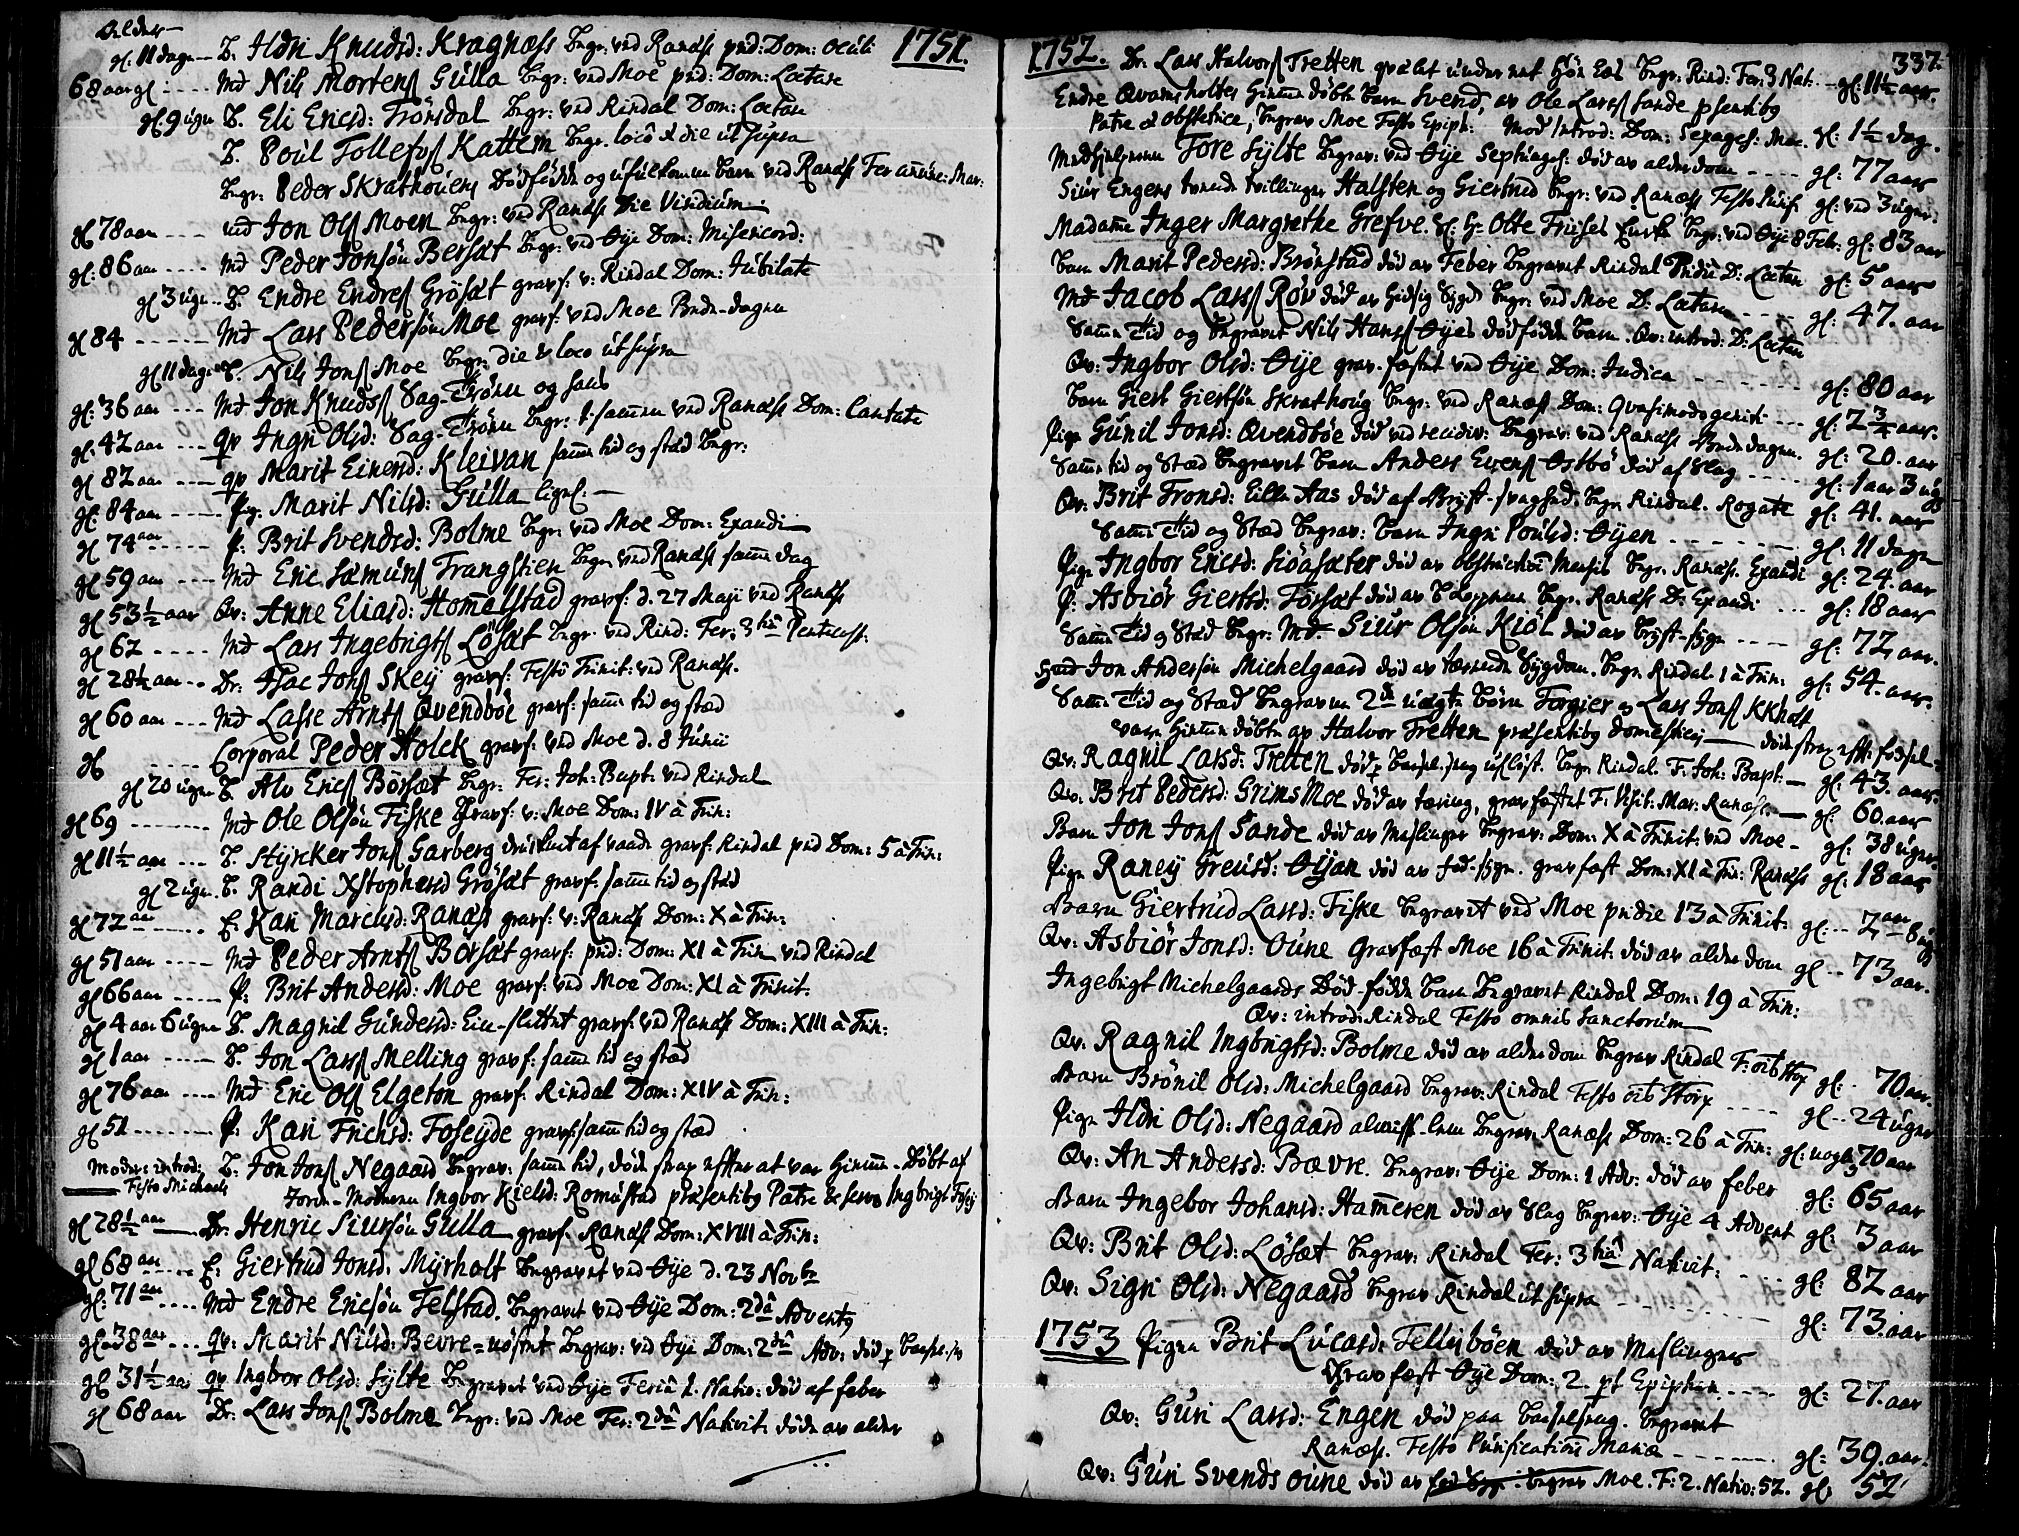 Alder
gl: 11 dage -- B. Ildri Knudsd: Kragnæss Begr: ved Ranæss prid: Dom: Oculi 1751.
68 aar gl ---- Md Nils Mortenss Gulla Begr: ved Moe prid: Dom: Lætare
gl. 9 ugn B. Eli Ericsd: Trönsdal Begr: ved Rindal Dom: Lætare
B. Poul Tollefss Kattem Begr. loco & die ut supra
Begr: Peder Skrathouens dödfödde og ufulkomne barn ved Ranæss Fer. annunc: Mar:
gl 78 aar ---- Jon Olss Moen Begr: ved Ranæss Die Viridium.
gl: 86 aar ---- Md Peder Jonsön Bersæt Begr: ved Öye Dom: Misericord:
gl 3 ugn -- B. Endre Endress Grösæt gravf: v: Rindal Dom: Jubilate
gl 84 ----- Md Lars Pedersön Moe gravf: ved Moe Bede-dagen
gl 11 dage B. Nils Jonss Moe Begr: die & loco ut supra
gl: 36 aar --- Md Jon Knudss Sag-Trönn og hans
gl: 42 aar --- qv Ingri Olsd: Sag-Trönn Begr: t.sammen ved Ranæss Dom: Cantate
gl 82 aar --- qv Marit Einersd: Kleivan samme tid og stæd Begr:
gl: 84 aar ---- P. Marit Nilsd: Gulla liges. —
gl 74 aar ----- P. Brit Svendsd: Bolme Begr: ved Moe Dom: Exaudi
gl 59 aar --- Md Eric Sæmunss Trangstien Begr. ved Ranæss samme dag
gl 53½ aar Qv: Anne Eliasd: Homelstad gravf: d. 27 Maji ved Ranæss
gl 62 ---- Md Lars Ingebrigtss Lösæt Begr. ved Rind: Fer: 3tia Pentecost:
gl 28½ aar -- Dr: Isac Jonss Skeij gravf: Festo Trinit: ved Ranæss.
gl 60 aar --- Md Lasse Arntss Qvendböe gravf: samme tid og stæd
gl ---- Corporal Peder Holck gravf: ved Moe d. 8 Junii
gl 20 ugn B. Alv Ericss Börsæt Begr: Fer: Joh: Bapt: ved Rindal
gl 69 ------- Md Ole Olsön Fiske Gravf: v: Moe Dom: IV à Trin:
gl 11½ aar --- B. Styrcker Jonss Garberg af vaade gravf: Rindal prid Dom: 5 à Trin:
gl 2 ugn. B. Randi Xstophersd Grösæt gravf: samme tid og stæd
gl 72 aar ----- E. Kari Marcusd: Ranæss gravf: v: Ranæss Dom: X à Trin:
gl 51 aar ---- Md Peder Arntss Borsæt gravf: prid: Dom: XI à Trin ved Rindal
gl 66 aar ----- P: Brit Andersd: Moe gravf: ved Moe Dom: XI à Trinit:
gl 4 aar 6 ugn B. Magnil Gundersd: gravf: ved Ranæss Dom: XIII à Trin:
gl 1 aar ----- B. Jon Larss Melling gravf: samme tid og stæd
gl 76 aar ---- Md Eric Olss Elgetön gravf: Rindal Dom: XIV à Trin:
gl 51 ------ P: Kari Frichsd: Foseyde gravf: samme tid og stæd
Moder: introd: B. Jon Jonss Negaard Begrav: samme tid, döde strax efter at var Hiemme-Döbt af
Festo Michaelis Jorde-Moderen Ingbor Kielsd: Romustad præsentibq Patre & servo Ingbrigt
gl 28½ aar —— Dr: Henric Siursön Gulla gravf: Ranæss Dom: XVIII à Trin:
gl 68 aar ---- E: Giertrud Jonsd: Myrholt Begravet ved Öye d. 23 Novbr
gl: 71 aar ---- Md Endre Ericsön Telstad. Begravet ved Öye Dom: 2da Adventq
gl: 38 aar --- qv: Marit Nilsd: Bevre Begrav: ved Öye Dom: 2da Adv: död
gl 31½ aar qv Ingbor Olsd: Sylte Begravet ved Öye Feria 1. Nativ: död af feber
gl 68 aar Dr: Lars Jonss Bolme Begr: ved Moe Fer: 2da Nativit: döde av alder
1752. Dr. Lars Halvorss Tretten Begr: Rind: Fer: 3 Nat. -- gl: 11½ aar. 337.
Endre Qvamsholtes hiemme döbte barn Svend, av Ole Larss Sande psentibq
Patre & obstetrice, Begrav Moe Festo Epiph: Mod introd: Dom: Sexages: Moe. gl: 1½ dag.
Medhielperen Tore Sylte Begrav: ved Öye Septuages: död av alderdom ---- gl: 77 aar
Siur Engens tvende tvillinger Halsten og Giertrud Begr: ved Ranæss Festo Purif. gl: ved 3 uger:
Madame Inger Margrethe Grefve. Hr: Otte Friises Enke Begr: ved Öye 8 Febr: gl: 83 aar
barn Marit Pedersd: Brönstad död av Feber Begravet Rindal Pridie D: Lætare gl: 5 aar
Md Jacob Larss Röv död av Begr: ved Moe D: Lætare ---- gl: 47. aar
Samme Tid og Begravet Nils Hanss Öyes dödfödde barn. Qv: introd: D: Lætare
Qv: Ingbor Olsd: Öye grav-fæstet ved Öye Dom: Judica ------ gl: 80 aar
barn Giert Giertsön Skrathoug Begr: ved Ranæss Dom: Qvasimodogenit: --- gl: 2¾ aar.
Pige Gunil Jonsd: Qvendböe död Begrav: ved Ranæss Bede dagen. gl: 20. aar
Samme tid og Stæd Begravet barn Anders Evenss Östbö död af Slag ---- gl: 1 aar 3 uger
Qv: Brit Tronsd: Lille Aas död af Bryst-svaghed. Begr Rindal. Rogate gl: 41. aar
Samme Tid og Stæd Begrav: barn Ingri Poulsd: Öyen ------- gl: 11 dage
Pige Ingbor Ericsd: Siöasæter död av obstruction Begr. Ranæss. Exaudi gl: 24. aar
P: Asbiör Giertsd: Törsæt död av Begr. Ranæss D: Exaudi --- gl: 18 aar
Samme Tid og Stæd Begr: Md. Siur Olsön Kiöl död av bryst-syge ---- gl: 72 aar.
Jon Andersön Michelgaard död av tærende Sygdom. Begr. Rindal 1 à Trin: gl: 54. aar.
Samme Tid og Stæd Begraven 2de uægte börn Torgier og Lars Jonss
varn hiemme döbte av Halvor Tretten præsentibq domesticis —— döde strax efter födsel =
Qv: Ragnil Larsd: Tretten död Begr Rindal. F: Joh: Bapt: — gl: 43. aar.
Qv: Brit Pedersd: GrimsMoe död av tæring, gravfæstet F: Visit: Mar: Ranæss. — gl: 60. aar
Barn Jon Jonss Sande död av Meslinger Begrav: Dom: X à Trinit: ved Moe - gl: 38 uger
Pige Raney Treusd: Öyan död av grav fæst Dom: XI à Trin: Ranæss gl: 18 aar
Barn Giertrud Larsd: Fiske Begravet ved Moe pridie 13 à Trinit: gl: -- 2 aar 8 ug
Qv: Asbiör Jonsd: Oune Gravfæst Moe 16 à Trinit: död av alderdom gl -- 73 aar.
Ingebrigt Michelgaards Död-födde barn Begravet Rindal Dom: 19 à Trin:
Qv: introd: Rindal Festo omnis Sanctorum
Qv: Ragnil Ingbrigtsd: Bolme död av alderdom Begrav Rindal F: oib Stor gl: -- 70 aar.
Barn Brönil Olsd: Michelgaard Begrav: Rindal Festo oib Stor ---- gl: -- 24 uger
Pige Ildri Olsd: Negaard Begrav: Ranæss Dom: 26 à Trin: gl: 70 aar
Qv: An Andersd: Bævre. Begrav: Öye Dom: 1 Adv: död av feber gl: 65 aar
Barn Ingebor Johansd: Hameren död av Slag Begrav: Öye 4 Advent gl: 3 aar
Qv: Brit Olsd: Lösæt Begrav: Rindal Fer: 3tia Nativit: --- gl: 82 aar
Qv: Sigri Olsd: Negaard Begrav Rindal ut supra ------- gl: 73. aar
1753 Pigen Brit Lucasd: Tellisböen död av Meslinger
Grav fæst Öye Dom: 2 pt Epiphan ---- gl: 27. aar
Qv: Guri Larsd: Engen död paa barselseng. Begravet
Ranæss. Festo Purification Mariæ ------ gl: 39. aar.
Qv: Guri Svends Oune död av Begrav Moe. F: 2. Nativ: 52. gl: 52